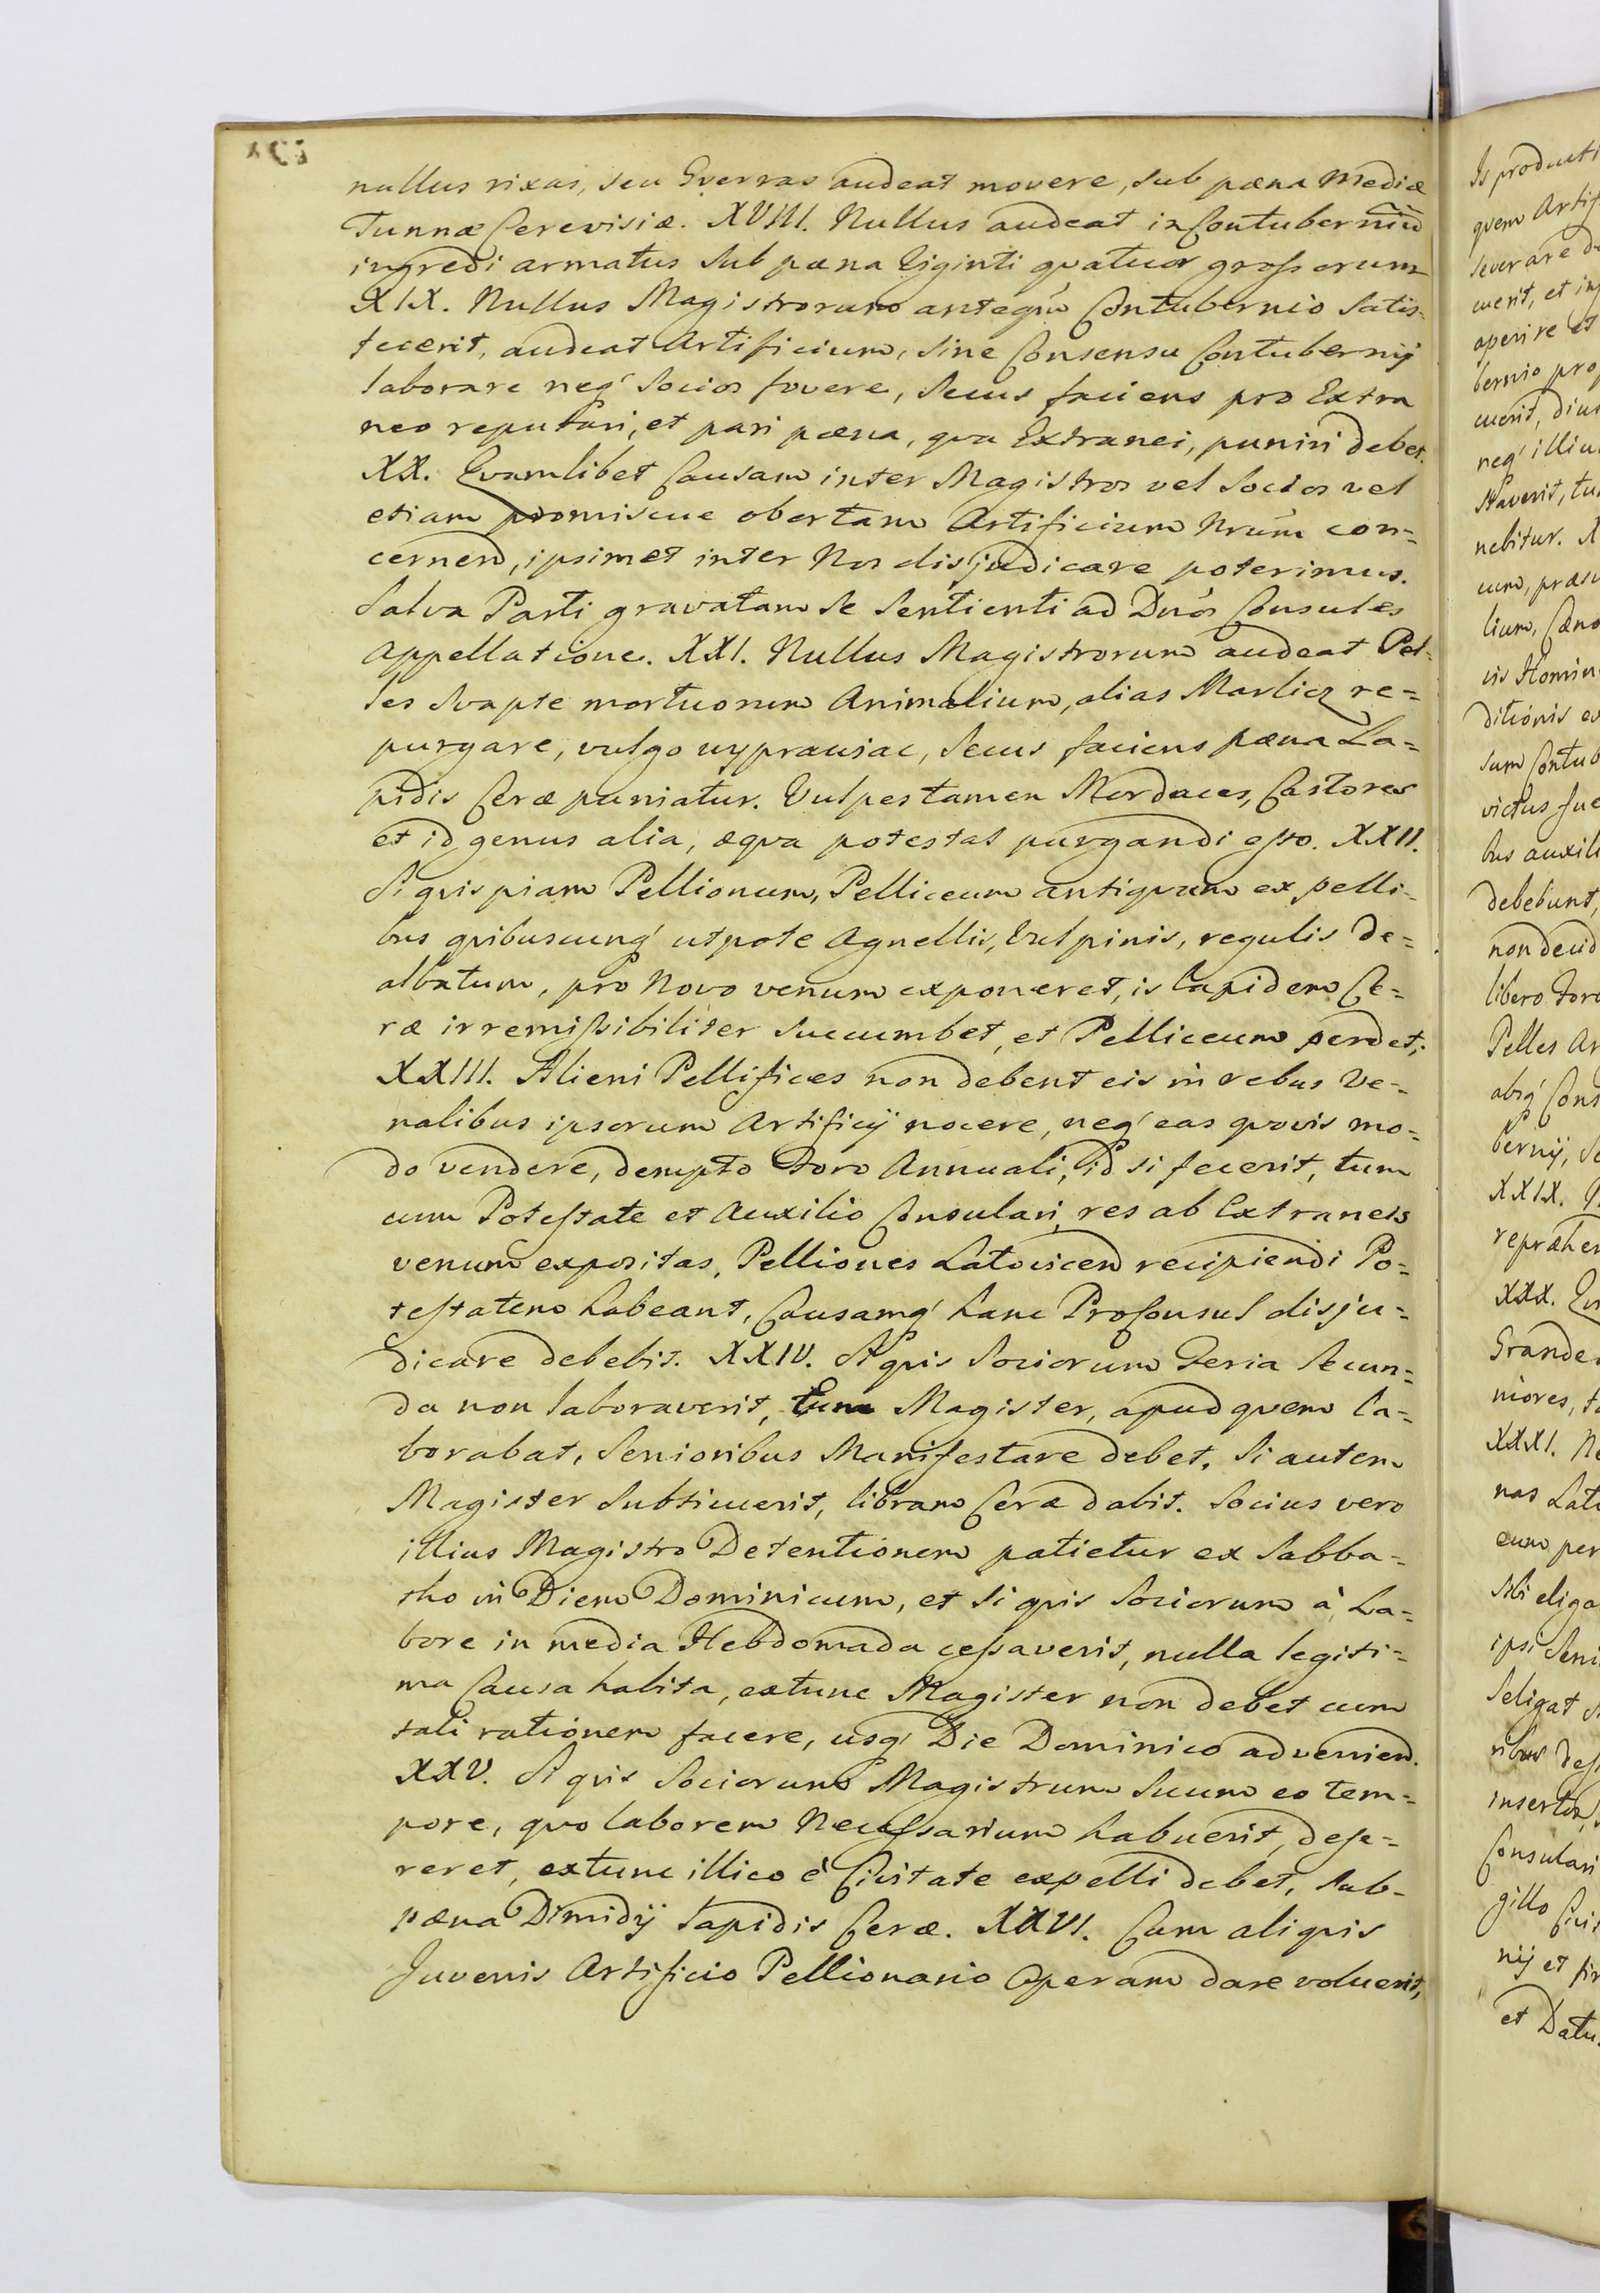 nullus rixas, seu Gverras audeat movere, sub pæna Mediæ
Tunnæ Cerevisiæ. XVIII. Nullus audeat in Contuberniũ
ingredi armatus sub pæna Viginti qvatuor grossorum
XIX. Nullus Magistrorum anteqũ Contubernio Satis-
fecerit, audeat Artificium, sine Consensu Contubernij
laborare neq́ Socios fovere, secus faciens pro Extra
neo reputari, et pari pæna, qva Extranei, puniri debet.
XX. Qvamlibet Causam inter Magistros vel Socios vel
etiam promiscue obortam Artificium Nrũm con=
cernen, ipsimet inter Nos disjudicare poterimus.
Salva Parti gravatam se Sentienti ad Dnós Consules
Appellatione. XXI. Nullus Magistrorum audeat Pel=
les Svapte mortuorum Animalium, alias Marlicz re=
purgare, vulgo wyprawiac, Secus faciens pæna La=
pidis Ceræ puniatur. Vulpes tamen Mordaces, Castores
et id genus alia, æqva potestas purgandi esto. XXII.
Si qvispiam Pellionum, Pelliceum antiqvum ex pelli=
bus qvibuscunq́ utpote Agnellis, Vulpinis, regulis de=
albatum, pro Novo venum exponeret, is lapidem Ce=
ræ irremissibiliter succumbet, et Pelliceum perdet;
XXIII. Alieni Pellifices non debent eis in rebus Ve=
nalibus ipsorum Artificij nocere, neq́ eas qvovis mo=
do vendere, dempto Foro Annuali, id si fecerit, tum
cum Potestate et Auxilio Consulari, res ab Extraneis
venum expositas, Pelliones Latovicen recipiendi Po=
testatem habeant, Causamq́ hanc ProConsul disju=
dicare debebit. XXIV. Si qvis Sociorum Feria Secun=
da non laboraverit, tum Magister, apud qvem la=
borabat, Senioribus Manifestare debet, Si autem
Magister Subticuerit, libram Ceræ dabit. Socius vero
illius Magistro Detentionem patietur ex Sabba=
tho in Diem Dominicum, et si qvis Sociorum à La=
bore in media Hebdomada cessaverit, nulla legiti=
ma Causa habita, extunc Magister non debet cum
tali rationem facere, usq́ Die Dominico advenien.
XXV. Si qvis Sociorum Magistrum Suum eo tem=
pore, qvo laborem Necessarium habuerit, dese=
reret, extunc illico è Civitate expelli debet, sub-
pæna Dimidij Lapidis Ceræ. XXVI. Cum aliqvis
Juvenis Artificio Pellionario Operam dare voluerit,